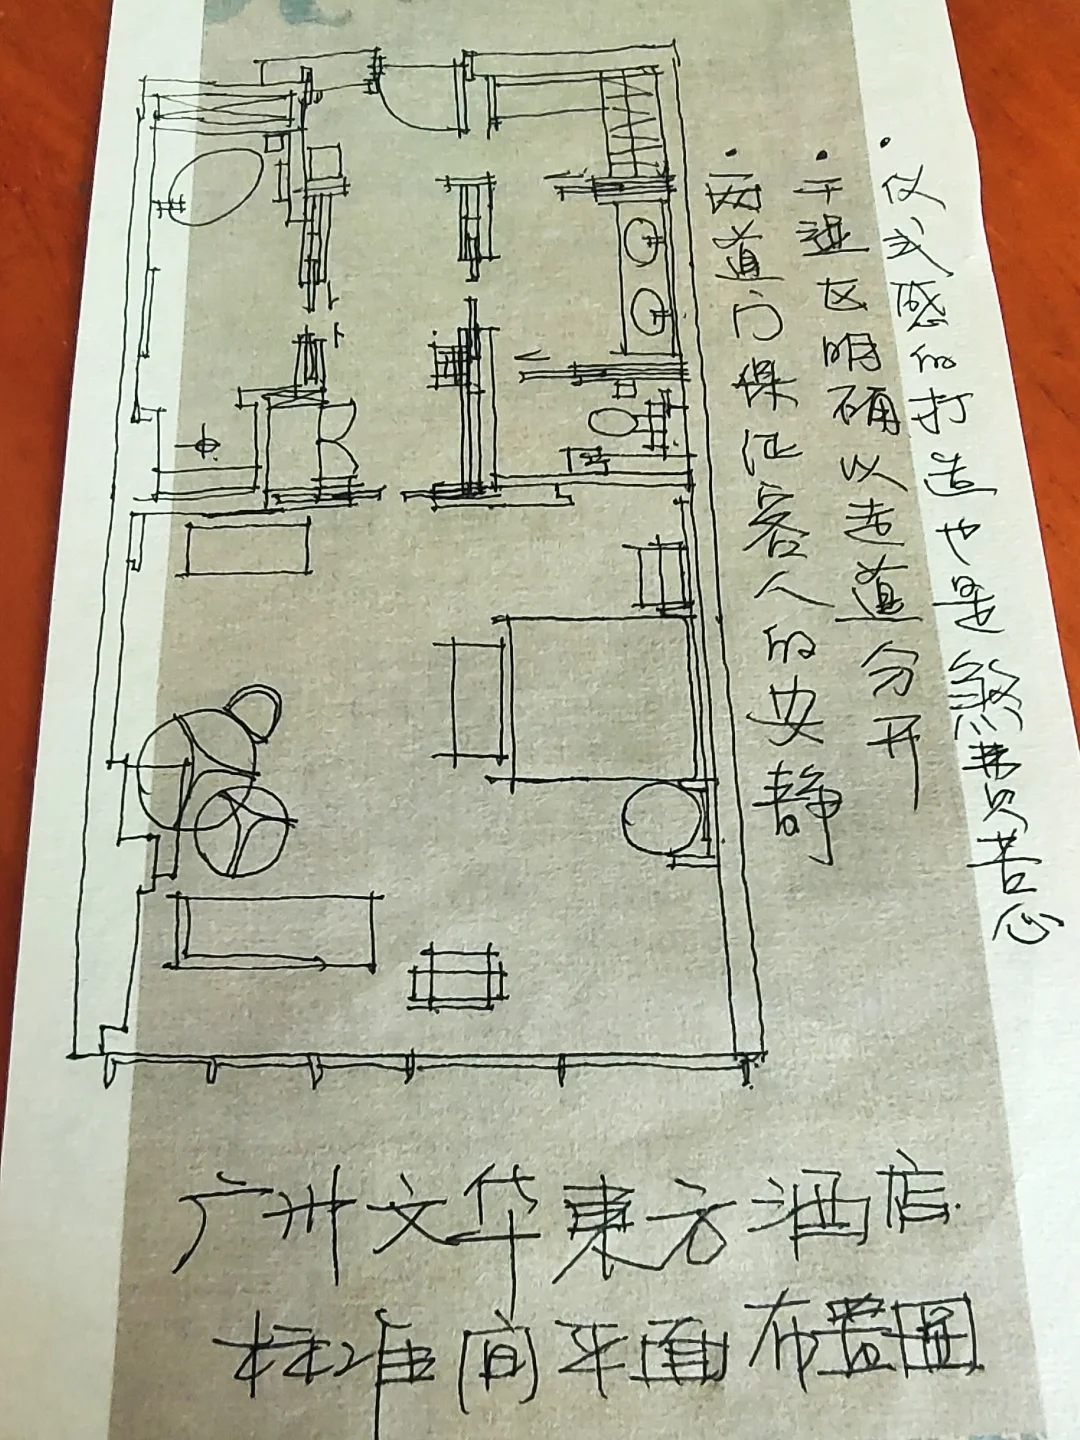 ·两道门保证客人的安静
·干湿区明确以走道分开
·仪式感的打造也是煞费苦心
广州文华東方酒店
标准间平面布置图